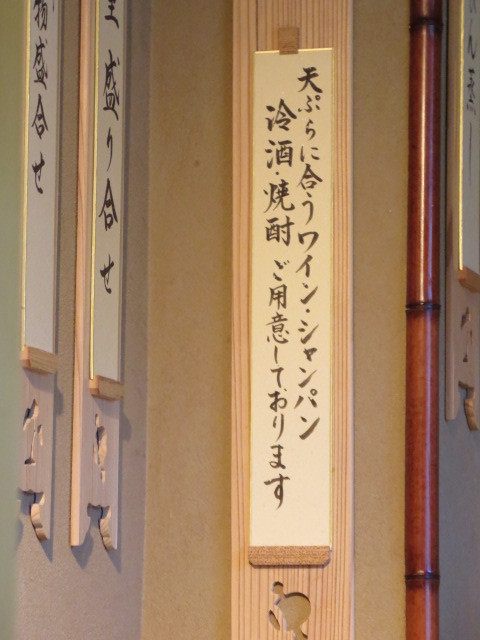 天ぷらに合うワイン・シャンパン
冷酒・焼酎ご用意しております
盛り合せ
盛合せ